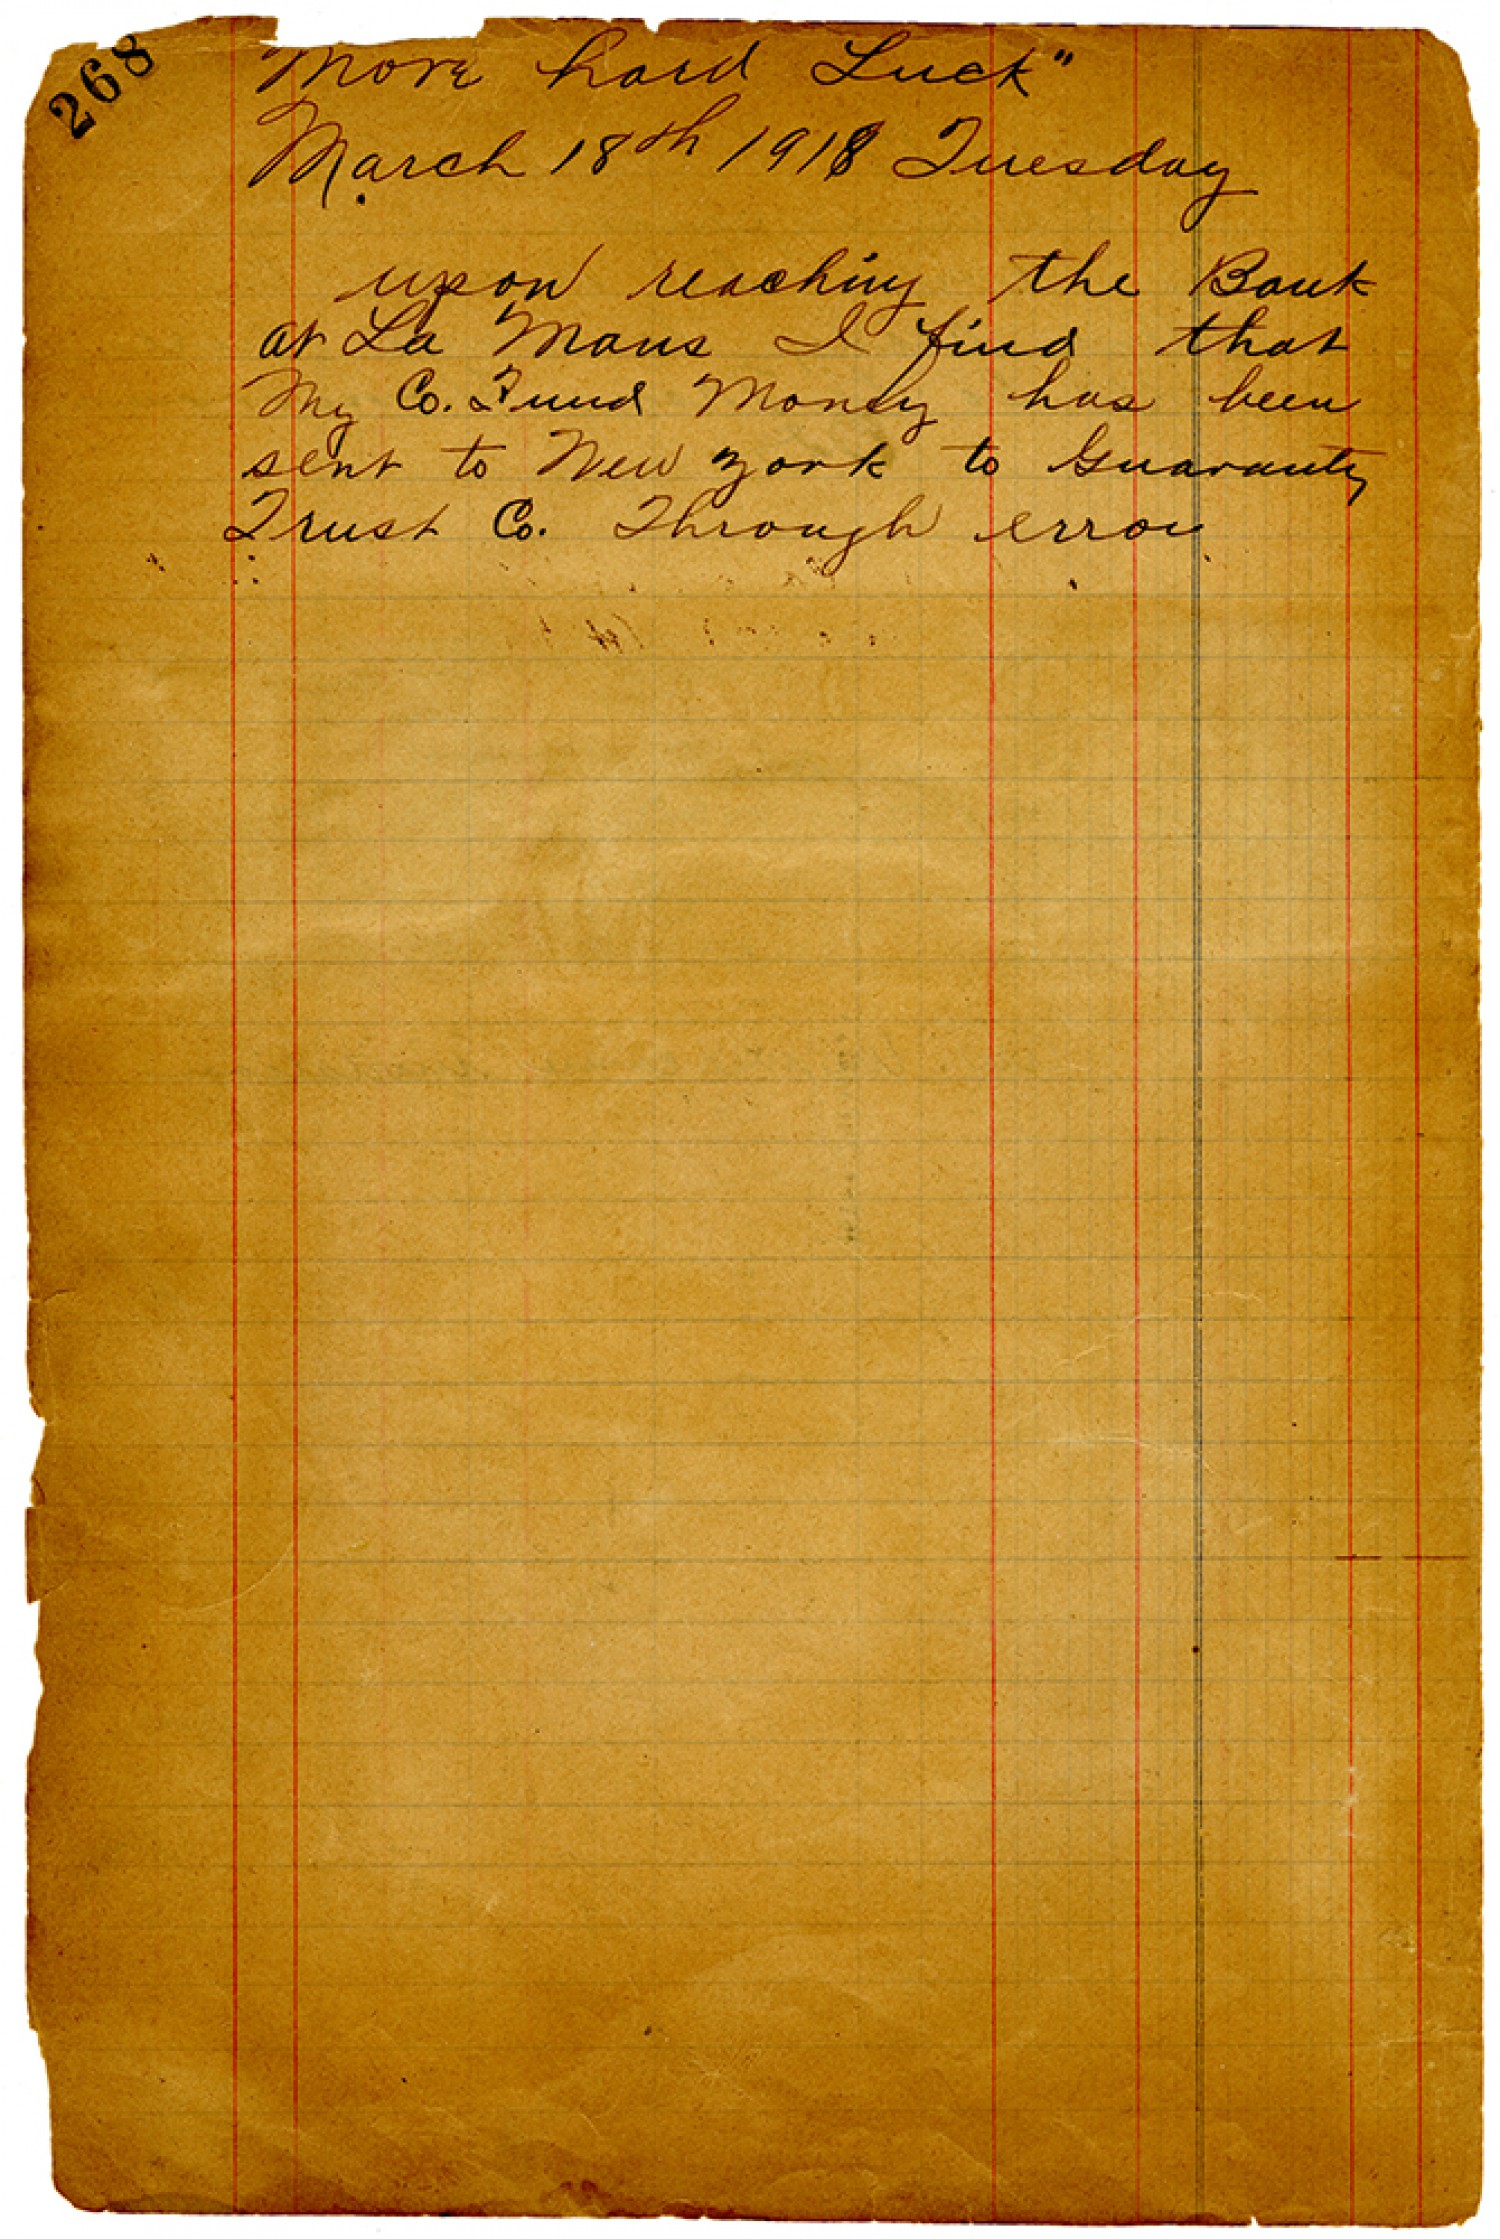 268
More hard Luck"
March 18th 1918 Tuesday
upon reaching the Bank
at La Mans I find that
My Co. Fund Money has been
sent to New York to Guaranty
Trust Co. Through error